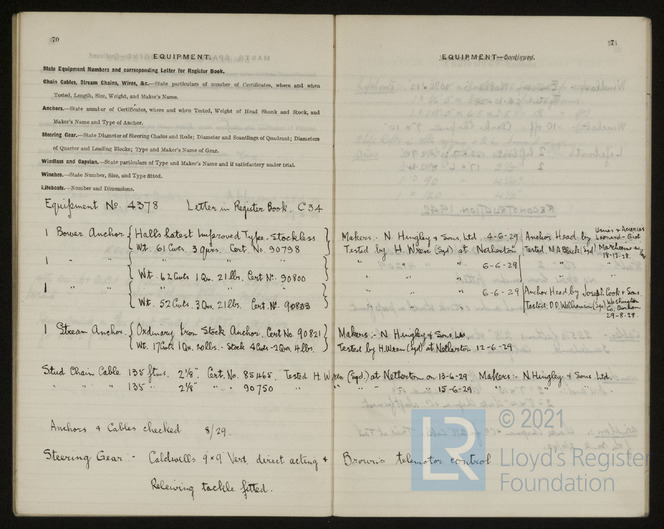 70
EQUIPMENT.
State Equipment Numbers and corresponding Letter for Register Book.
Chain Cables, Stream Chains, Wires, &c.—State particulars of number of Certificates, where and when
Tested, Length, Size, Weight, and Maker's Name.
Anchors.—State number of Certificates, where and when Tested, Weight of Head Shank and Stock, and
Maker's Name and Type of Anchor.
Steering Gear.—State Diameter of Steering Chains and Rods; Diameter and Scantlings of Quadrant; Diameters
of Quarter and Leading Blocks; Type and Maker's Name of Gear.
Windlass and Capstan.—State particulars of Type and Maker's Name and if satisfactory under trial.
Winches.—State Number, Size, and Type fitted.
Lifeboats.—Number and Dimensions.
Equipment No. 4378 Letter in Register Book. C34
1 Bower Anchor { Halls latest Improved Type. Stockless
Wt. 61 Cwts. 3 Qrs. Cert. No. 90798
1 " " { " "
Wt. 62 Cwts. 1 Qr. 21 lbs. Cert. No. 90800
1 " " { " "
Wt. 52 Cwts. 3 Qrs. 21 lbs. Cert. No. 90803
1 Stream Anchor. { Ordinary Iron Stock Anchor. Cert. No. 90821
Wt. 17 Cwts 1 Qr. lbs. - Stock 4 Cwts - 2 Qrs. 4 lbs.
Stud Chain Cable 135 fms. 2⅞" Cert. No. 85465. Tested H. W
" " 135 " 2⅞" " " 90750
Anchors & Cables checked 8/29
Steering Gear :- Caldwells 9 × 9 Vert. direct acting &
Relieving tackle fitted.
71
EQUIPMENT—Continued.
Makers :- N. Hingley & Sons. Ltd. 4-6-29
Tested by H. Wren (Supt) at Netherton
" " 6-6-29
" " 6-6-29
Anchor Head by
Tested M.A. (Supt)
18-12-28.
Anchor Head by Joseph Cook & Sons
Tested. D.D. Williamson (Supt) Washington
Co. Durham
29-8-29.
Makers :- N. Hingley & Sons Ltd.
Tested by H. Wren (Supt) at Netherton 12-6-29
ren (Supt.) at Netherton on 13-6-29 Makers :- N. Hingley & Sons Ltd.
" " " " 15-6-29. " "
Brown's telemotor control
© 2021
LR
Lloyd's Register
Foundation